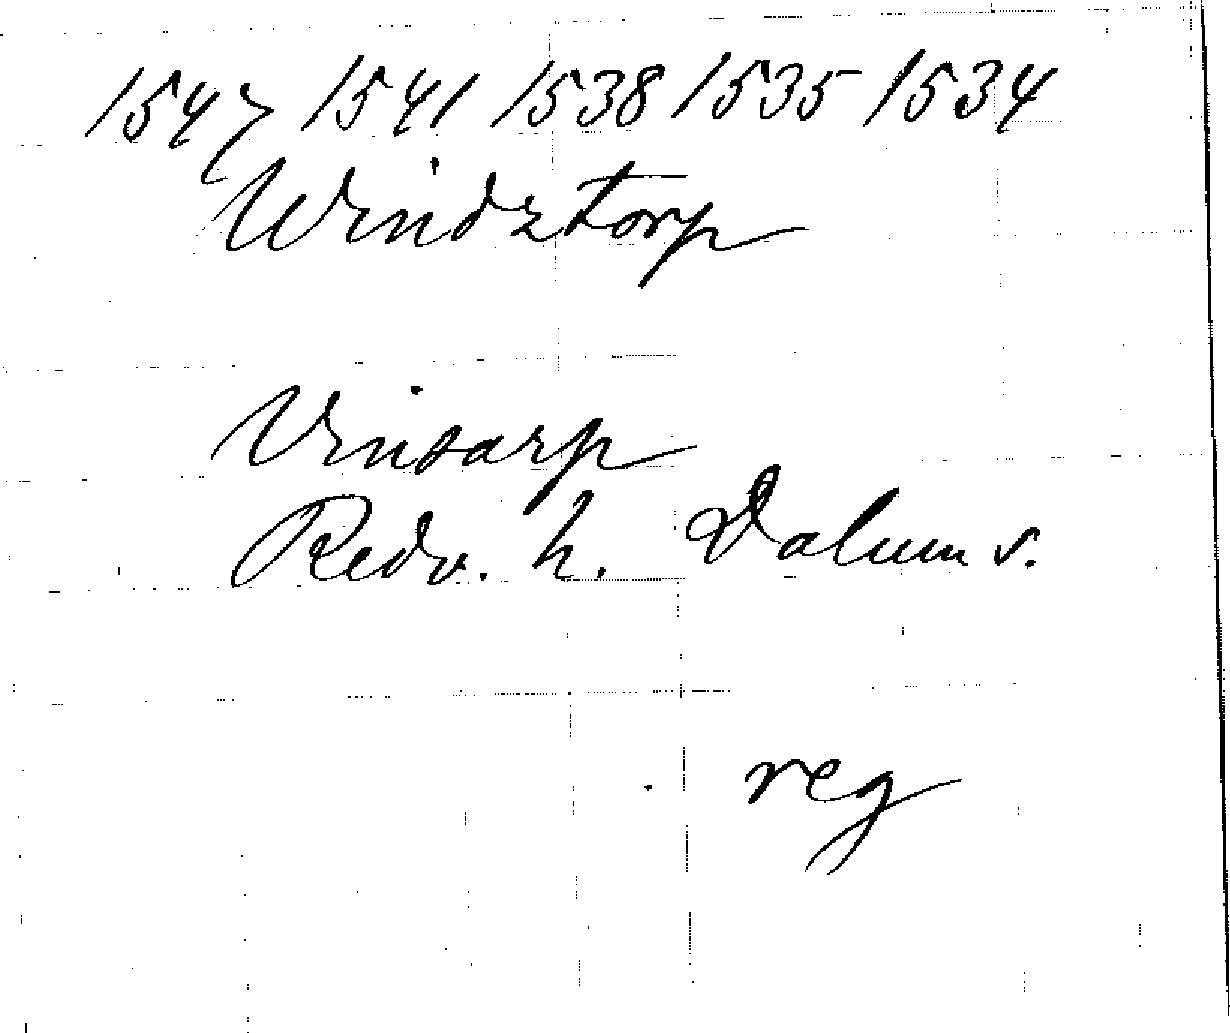 1547 1541 1538 1535 1534
Windztorp
Vinsarp
Redv. h. Dalum s.
reg